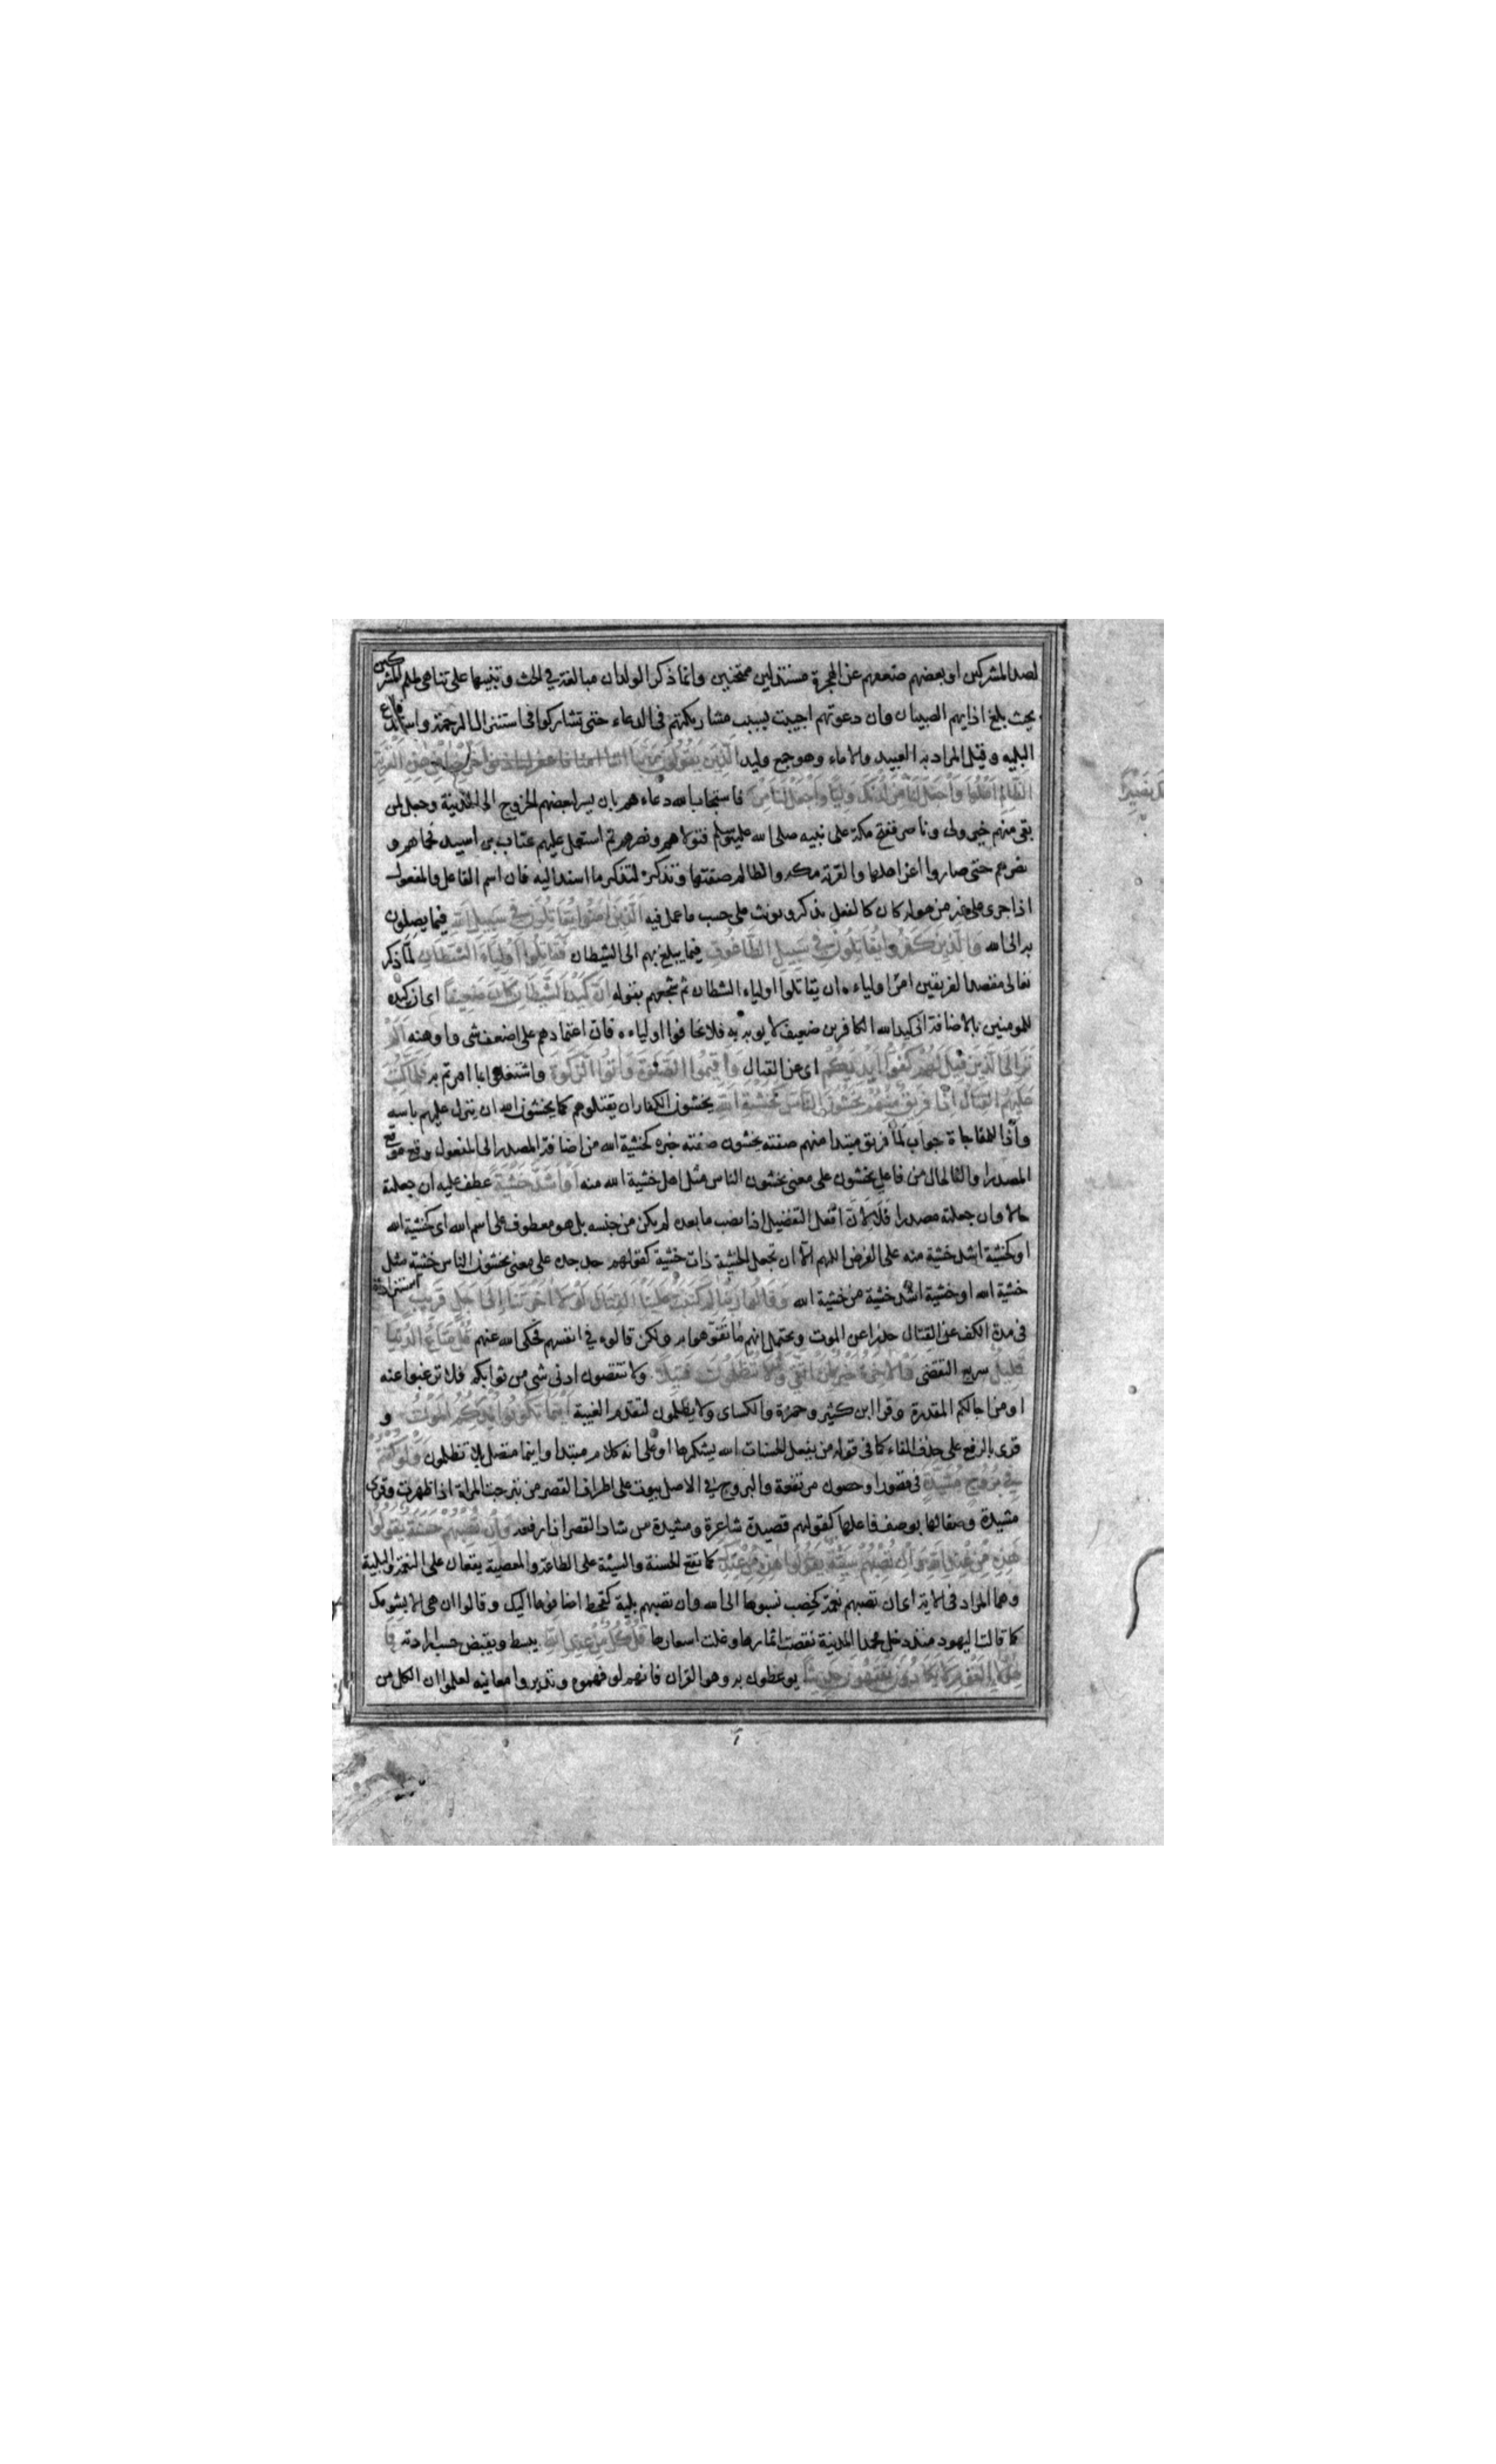 لصد المشركين او بعضهم صنعهم عن الهجرة مستذلين ممتحنين وانما ذكر الولدان مبالغة في الحث وتنبيها على تناهى ظلم المشركين
بحيث بلغ اذاهم الصبيان وان دعوتهم اجيبت بسبب مشاركتهم فى الدعاء حتى تشاركوا فى استنزال الرحمة واستدفاع
البليه وقيل المراد به العبيد والاماء وهو جمع وليد الَّذِينَ يَقُولُونَ رَبَّنَا
الظَّالِمِ اَهْلُهَا وَاجْعَلْ لَنَا مِنْ لَدُنْكَ وَلِيًّا وَاجْعَلْ لَنَا مِنْ فاستجاب الله دعاءهم بان يسر لبعضهم الخروج الى المدينة وجعل لمن
بقى منهم خير ولى وناصر ففتح مكة على نبيه صلى الله عليه وسلم فتولاهم ونصرهم ثم استعمل عليهم عتاب بن اسيد فحاهم و
نصرهم حتى صاروا اعز اهلها والقرية مكه والظالم صفتها وتذكيره لتذكير ما اسند اليه فان اسم الفاعل والمفعول
اذا جرى على غير من هو له كان كالفعل يذكر ويونث على حسب ما عمل فيه الَّذِينَ اٰمَنُوا يُقَاتِلُونَ فِي سَبِيلِ اللهِ فيما يصلون
به الى الله وَالَّذِينَ كَفَرُوا يُقَاتِلُونَ فِي سَبِيلِ الطَّاغُوتِ فيما يبلغ بهم الى الشيطان فَقَاتِلُوا اَوْلِيَاءَ الشَّيْطَانِ لما ذكر
تعالى مقصد الفريقين امر اولياءه ان يقاتلوا اولياء الشطان ثم شجعهم بقوله اِنَّ كَيْدَ الشَّيْطَانِ كَانَ ضَعِيفًا اى ان كيده
للمومنين بالاضافة الى كيد الله الكافرين ضعيف لا يوبه به فلا تخافوا اولياءه فان اعتمادهم على اضعف شى واوهنه اَلَمْ
تَرَ اِلَى الَّذِينَ قِيلَ لَهُمْ كُفُّوا اَيْدِيَكُمْ اى عن القتال وَاَقِيمُوا الصَّلٰوةَ وَاٰتُوا الزَّكٰوةَ واشتغلوا بما امرتم به فَلَمَّا كُتِبَ
عَلَيْهِمُ الْقِتَالُ اِذَا فَرِيقٌ مِنْهُمْ يَخْشَوْنَ النَّاسَ كَخَشْيَةِ اللهِ يخشون الكفار ان يقتلوهم كما يخشون الله ان ينزل عليهم باسه
واذا للمفاجاة جواب لما فريق مبتدا منهم صفته يخشون صفته خبره كخشية الله من اضافة المصدر الى المفعول وقع موقع
المصدر او الحال من فاعل يخشون على معنى يخشون الناس مثل اهل خشية الله منه اَوْ اَشَدَّ خَشْيَةً عطف عليه ان جعلته
حالا وان جعلته مصدرا فلا لان افعل التفضيل اذا نصب ما بعده لم يكن من جنسه بل هو معطوف على اسم الله اى كخشية الله
او كخشية اشد خشية منه على الفرض اللهم الا ان تجعل الخشية ذات خشية كقولهم جد جده على معنى يخشون الناس خشية مثل
خشية الله او خشية اشد خشية من خشية الله وَقَالُوا رَبَّنَا لِمَ كَتَبْتَ عَلَيْنَا الْقِتَالَ لَوْلَا اَخَّرْتَنَا اِلَى اَجَلٍ قَرِيبٍ استزادة
فى مدة الكف عن القتال حذرا عن الموت ويحتمل انهم ما تفوهوا به ولكن قالوه في انفسهم فحكى الله عنهم قُلْ مَتَاعُ الدُّنْيَا
قَلِيلٌ سريع التقضى وَالْاٰخِرَةُ خَيْرٌ لِمَنِ اتَّقٰى وَلَا تُظْلَمُونَ فَتِيلًا ولا تنقصون ادنى شى من ثوابكم فلا ترغبوا عنه
او من اجالكم المقدرة وقرا ابن كثير وحمزة والكساى ولا يظلمون لتقدم الغيبة اَيْنَمَا تَكُونُوا يُدْرِكْكُمُ الْمَوْتُ و
قرى بالرفع على حذف الفاء كما فى قوله من يفعل الحسنات الله يشكرها او على انه كلام مبتدا واينما متصل بلا تظلمون وَلَوْ كُنْتُمْ
فِي بُرُوجٍ مُشَيَّدَةٍ فى قصور او حصون مرتفعة والبروج في الاصل بيوت على اطراف القصر من تبرجت المراة اذا ظهرت وقرى
مشيدة وصفا لها بوصف فاعلها كقولهم قصيدة شاعرة ومشيدة من شاد القصر اذا رفعه وَاِنْ تُصِبْهُمْ حَسَنَةٌ يَقُولُوا
هٰذِهِ مِنْ عِنْدِ اللهِ وَاِنْ تُصِبْهُمْ سَيِّئَةٌ يَقُولُوا هٰذِهِ مِنْ عِنْدِكَ كما تقع الحسنة والسيئة على الطاعة والمعصية يقعان على النعمة والبلية
وهما المراد فى الاية اى ان تصبهم نعمة كخصب نسبوها الى الله وان تصبهم بلية كقحط اضافوها اليك وقالوا ان هى الا بشومك
كما قالت اليهود منذ دخل محمد المدينة نقصت اثمارها وغلت اسعارها قُلْ كُلٌّ مِنْ عِنْدِ اللهِ يبسط ويقبض حسب ارادته فَمَا
لِهٰؤُلَاءِ الْقَوْمِ لَا يَكَادُونَ يَفْقَهُونَ حَدِيثًا يوعظون به وهو القران فانهم لو فهموه وتدبروا معانيه لعلموا ان الكل من